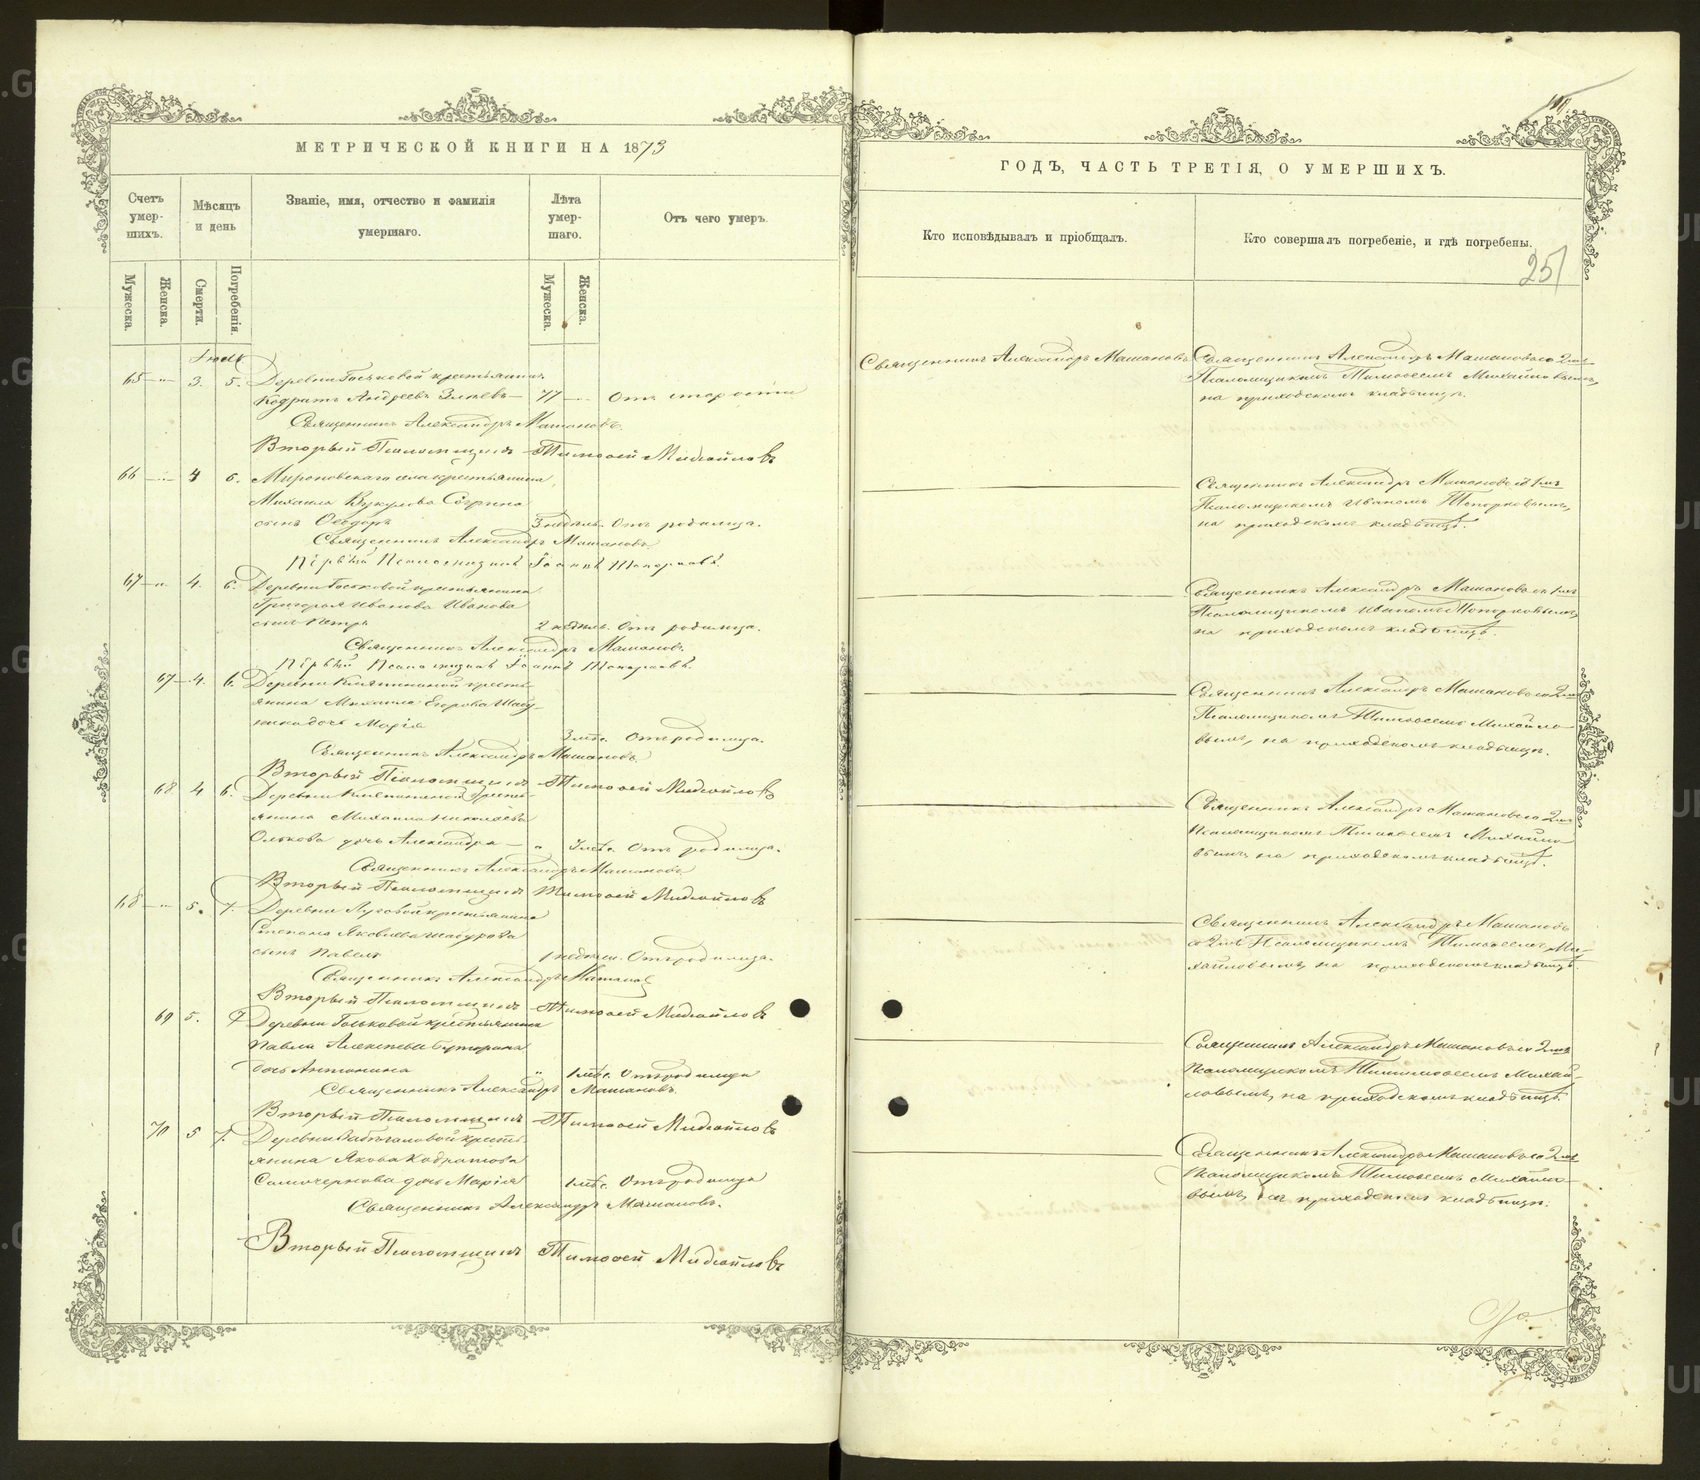 МЕТРИЧЕСКОЙ КНИГИ НА 1873
Счетъ умер-шихъ.
Мѣсяцъ и день
Званіе, имя, отчество и фамилія умершаго.
Лѣта умер-шаго.
Отъ чего умеръ.
Мужеска.
Женска.
Смерти.
Погребенія.
Мужеска.
Женска.
65 3. 5. Деревни крестьянинъ
Андреевъ 77 Отъ старости
Священникъ Александръ Машановъ.
Вторый Псаломщикъ Тимоѳей Михайловъ
66 4 6. Мироновскаго села крестьянина
Михаила
сынъ Ѳеодоръ 3 недѣль. Отъ родимца.
Священникъ Александръ Машановъ
Первый Псаломщикъ Іоаннъ Топорковъ
67 4. 6. Деревни крестьянина
Григорья Иванова Иванова
сынъ Петръ 2 недѣль. Отъ родимца.
Священникъ Александръ Машановъ.
Первый Псаломщикъ Іоаннъ Топорковъ.
67 4. 6. Деревни кресть-
янина Михаила Егорова
дочь Марія 3 мѣс. Отъ родимца.
Священникъ Александръ Машановъ
Вторый Псаломщикъ Тимоѳей Михайловъ
68 4 6. Деревни кресть-
янина Михаила Николаева
Олькова дочь Александра Отъ родимца.
Священникъ Александръ Машановъ
Вторый Псаломщикъ Тимоѳей Михайловъ
68 5. 7. Деревни Луговой крестьянина
Степана Яковлева
сынъ Павелъ 1 недѣли. Отъ родимца.
Священникъ Александръ Машановъ
Вторый Псаломщикъ Тимоѳей Михайловъ
69 5. 7 Деревни крестьянина
Павла Алексѣева
дочь Антонина 1 мѣс. Отъ родимца
Священникъ Александръ Машановъ.
Вторый Псаломщикъ Тимоѳей Михайловъ
70 5 7. Деревни кресть-
янина Якова Кодратова
Самочернова дочь Марія 1 мѣс. Отъ родимца
Священникъ Александръ Машановъ.
Вторый Псаломщикъ Тимоѳей Михайловъ
ГОДЪ, ЧАСТЬ ТРЕТІЯ, О УМЕРШИХЪ.
Кто исповѣдывалъ и пріобщалъ.
Кто совершалъ погребеніе, и гдѣ погребены.
251
Священникъ Александръ Машановъ
Священникъ Александръ Машановъ со 2мъ
Псаломщикомъ Тимоѳеемъ Михайловымъ,
на приходскомъ кладбищѣ.
Священникъ Александръ Машановъ съ 1мъ
Псаломщикомъ Иваномъ Топорковымъ,
на приходскомъ кладбищѣ.
Священникъ Александръ Машановъ съ 1мъ
Псаломщикомъ Иваномъ Топорковымъ,
на приходскомъ кладбищѣ.
Священникъ Александръ Машановъ со 2мъ
Псаломщикомъ Тимоѳеемъ Михайло-
вымъ, на приходскомъ кладбищѣ.
Священникъ Александръ Машановъ со 2мъ
Псаломщикомъ Тимоѳеемъ Михайло-
вымъ на приходскомъ кладбищѣ.
Священникъ Александръ Машановъ
со 2мъ Псаломщикомъ Тимоѳеемъ Ми-
хайловымъ, на приходскомъ кладбищѣ.
Священникъ Александръ Машановъ со 2мъ
Псаломщикомъ Тимоѳеемъ Михай-
ловымъ, на приходскомъ кладбищѣ.
Священникъ Александръ Машановъ со 2мъ
Псаломщикомъ Тимоѳеемъ Михайло-
вымъ, на приходскомъ кладбищѣ.